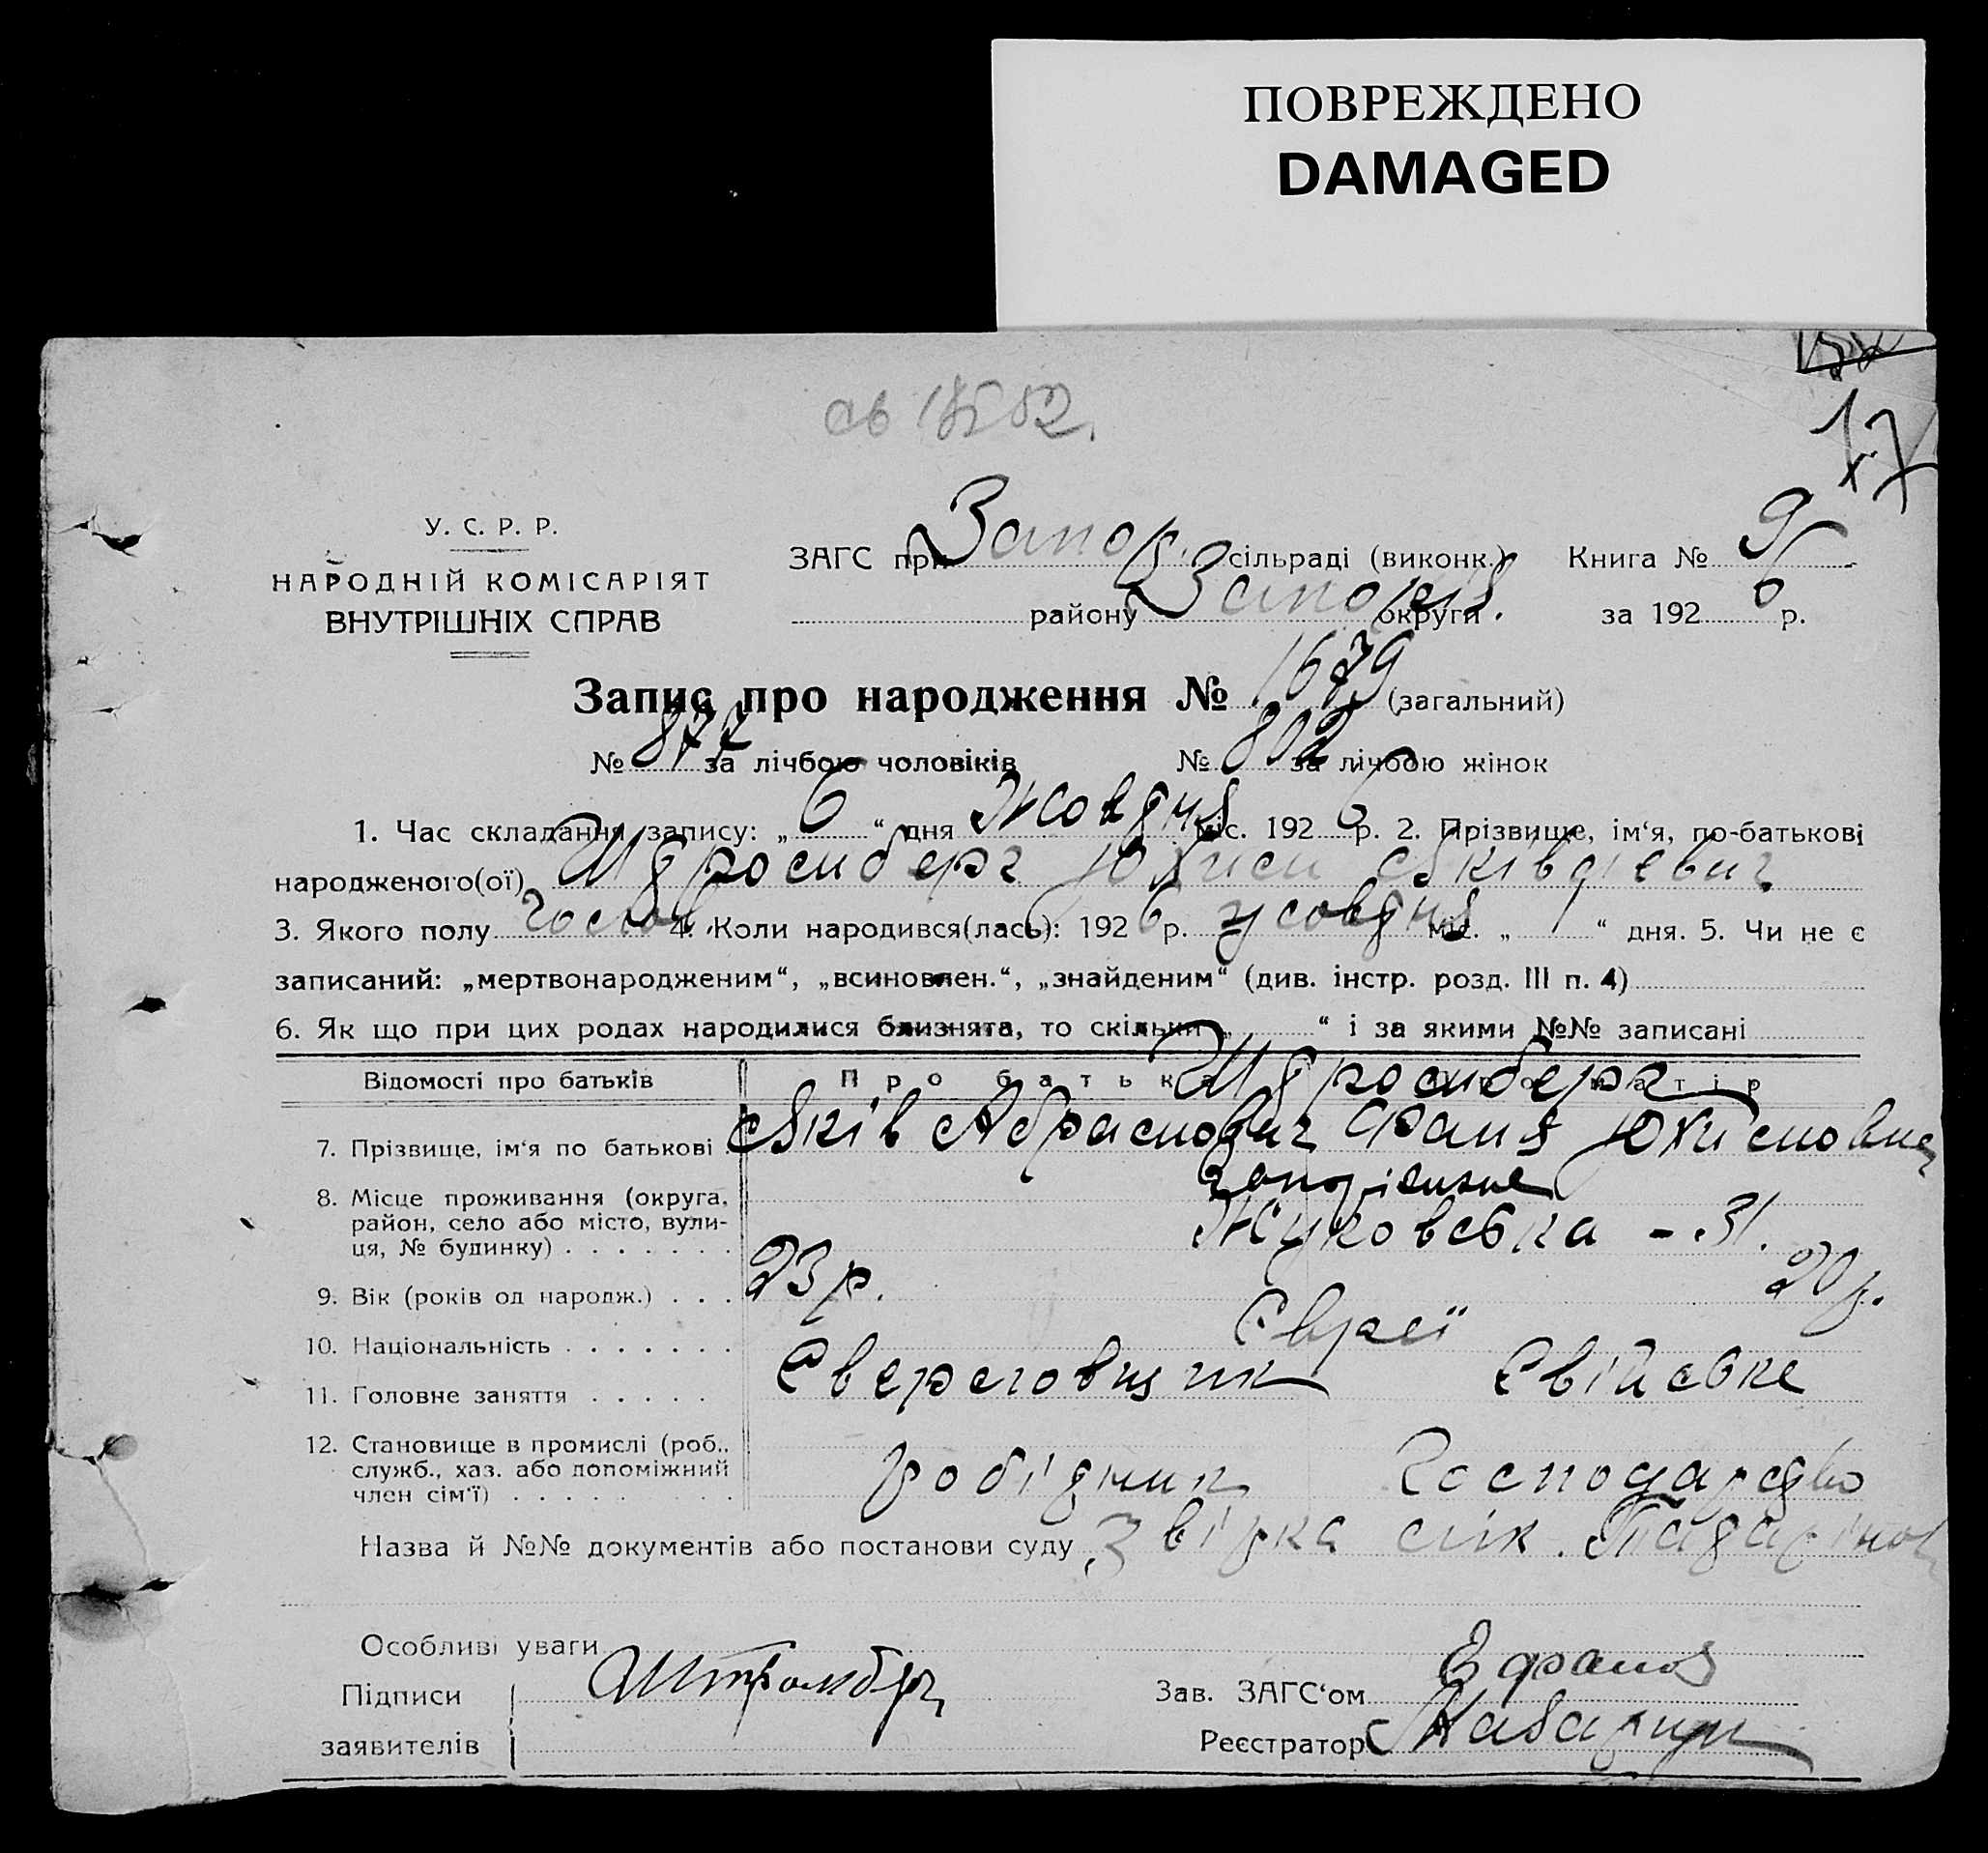 ПОВРЕЖДЕНО
DAMAGED
17
У. С. Р. Р.
НАРОДНІЙ КОМІСАРІЯТ
ВНУТРІШНІХ СПРАВ
ЗАГС при Запор. сільраді (виконк.) Книга № 9
району Запоріз. округи за 1926 р.
Запис про народження № 1679 (загальний)
№ 877 за лічбою чоловіків № 802 за лічбою жінок
1. Час складання запису: „ 6 “ дня Жовтня міс. 1926 р. 2. Прізвище, ім‘я, по-батькові
народженого(ої) Штромберг
3. Якого полу 4. Коли народився(лась): 1926 р. жовтня міс. „ 1 “ дня. 5. Чи не є
записаний: „мертвонародженим“, „всиновлен.“, „знайденим“ (див. інстр. розд. III п. 4)
6. Як що при цих родах народилися близнята, то скільки „ “ і за якими №№ записані
Відомості про батьків Про батька Про матір
Штромберг
7. Прізвище, ім‘я по батькові Яків Абрамович Фаня Юхимовна
8. Місце проживання (округа, район, село або місто, вулиця, № будинку) Запоріжжє
Жуковська - 31.
9. Вік (років од народж.) 23 р. 20 р.
10. Національність Євреї
11. Головне заняття Свійське
12. Становище в промислі (роб., служб., хаз. або допоміжний член сім‘ї) робітник господарство
Назва й №№ документів або постанови суду
Особливі уваги
Підписи Штромберг Зав. ЗАГС‘ом
заявителів Реєстратор